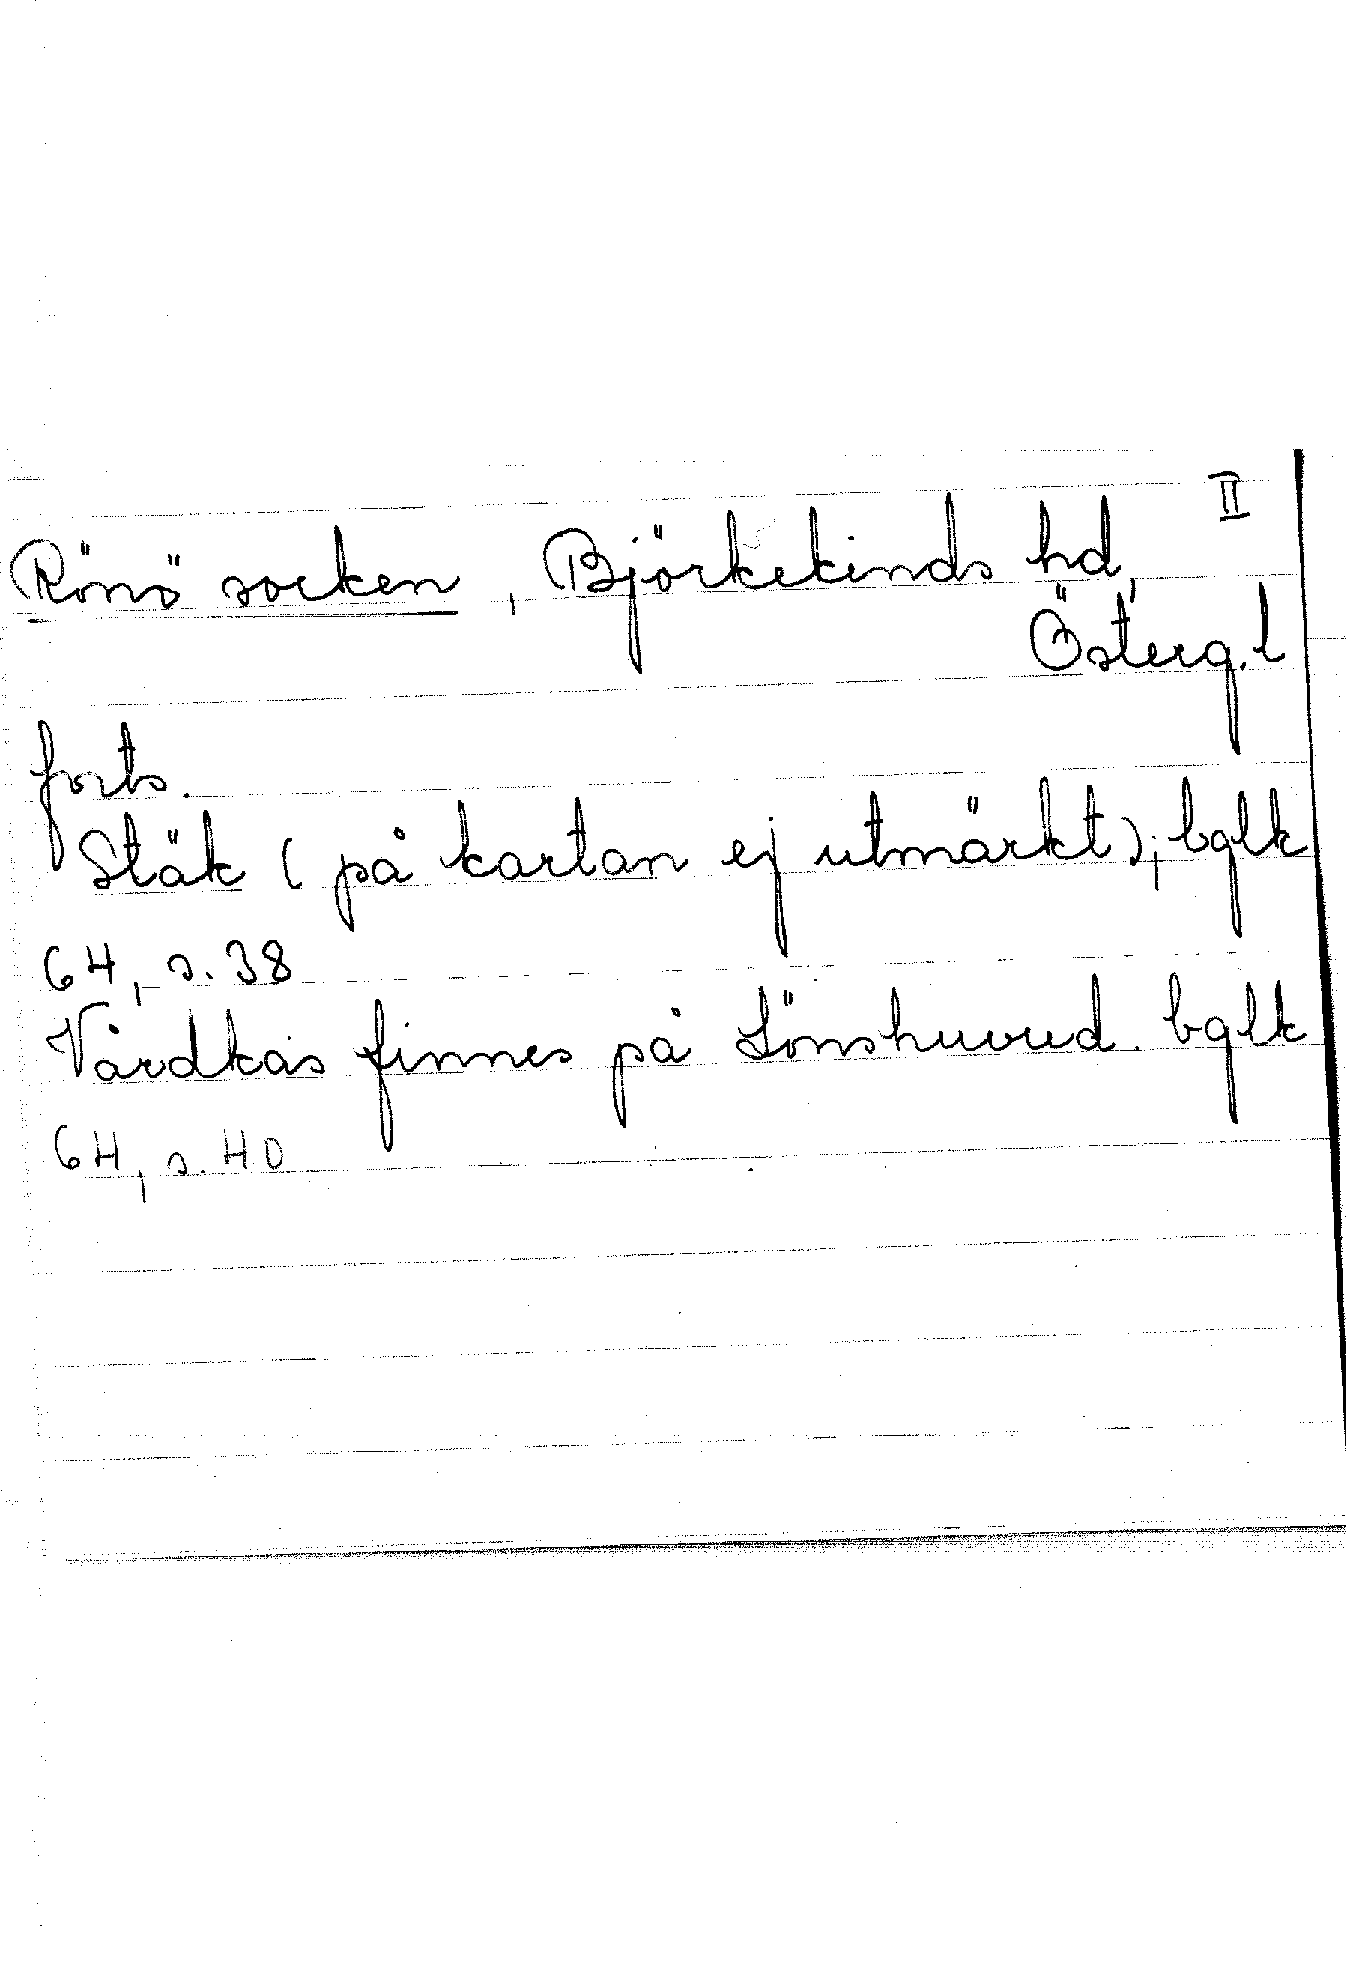 II
Rönö socken, Björkekinds hd,
Österg. l
forts.
Stäk (på kartan ej utmärkt); bglk
64, s. 38
Vårdkas finnes på Lönshuvud. bglk
64, s. 40